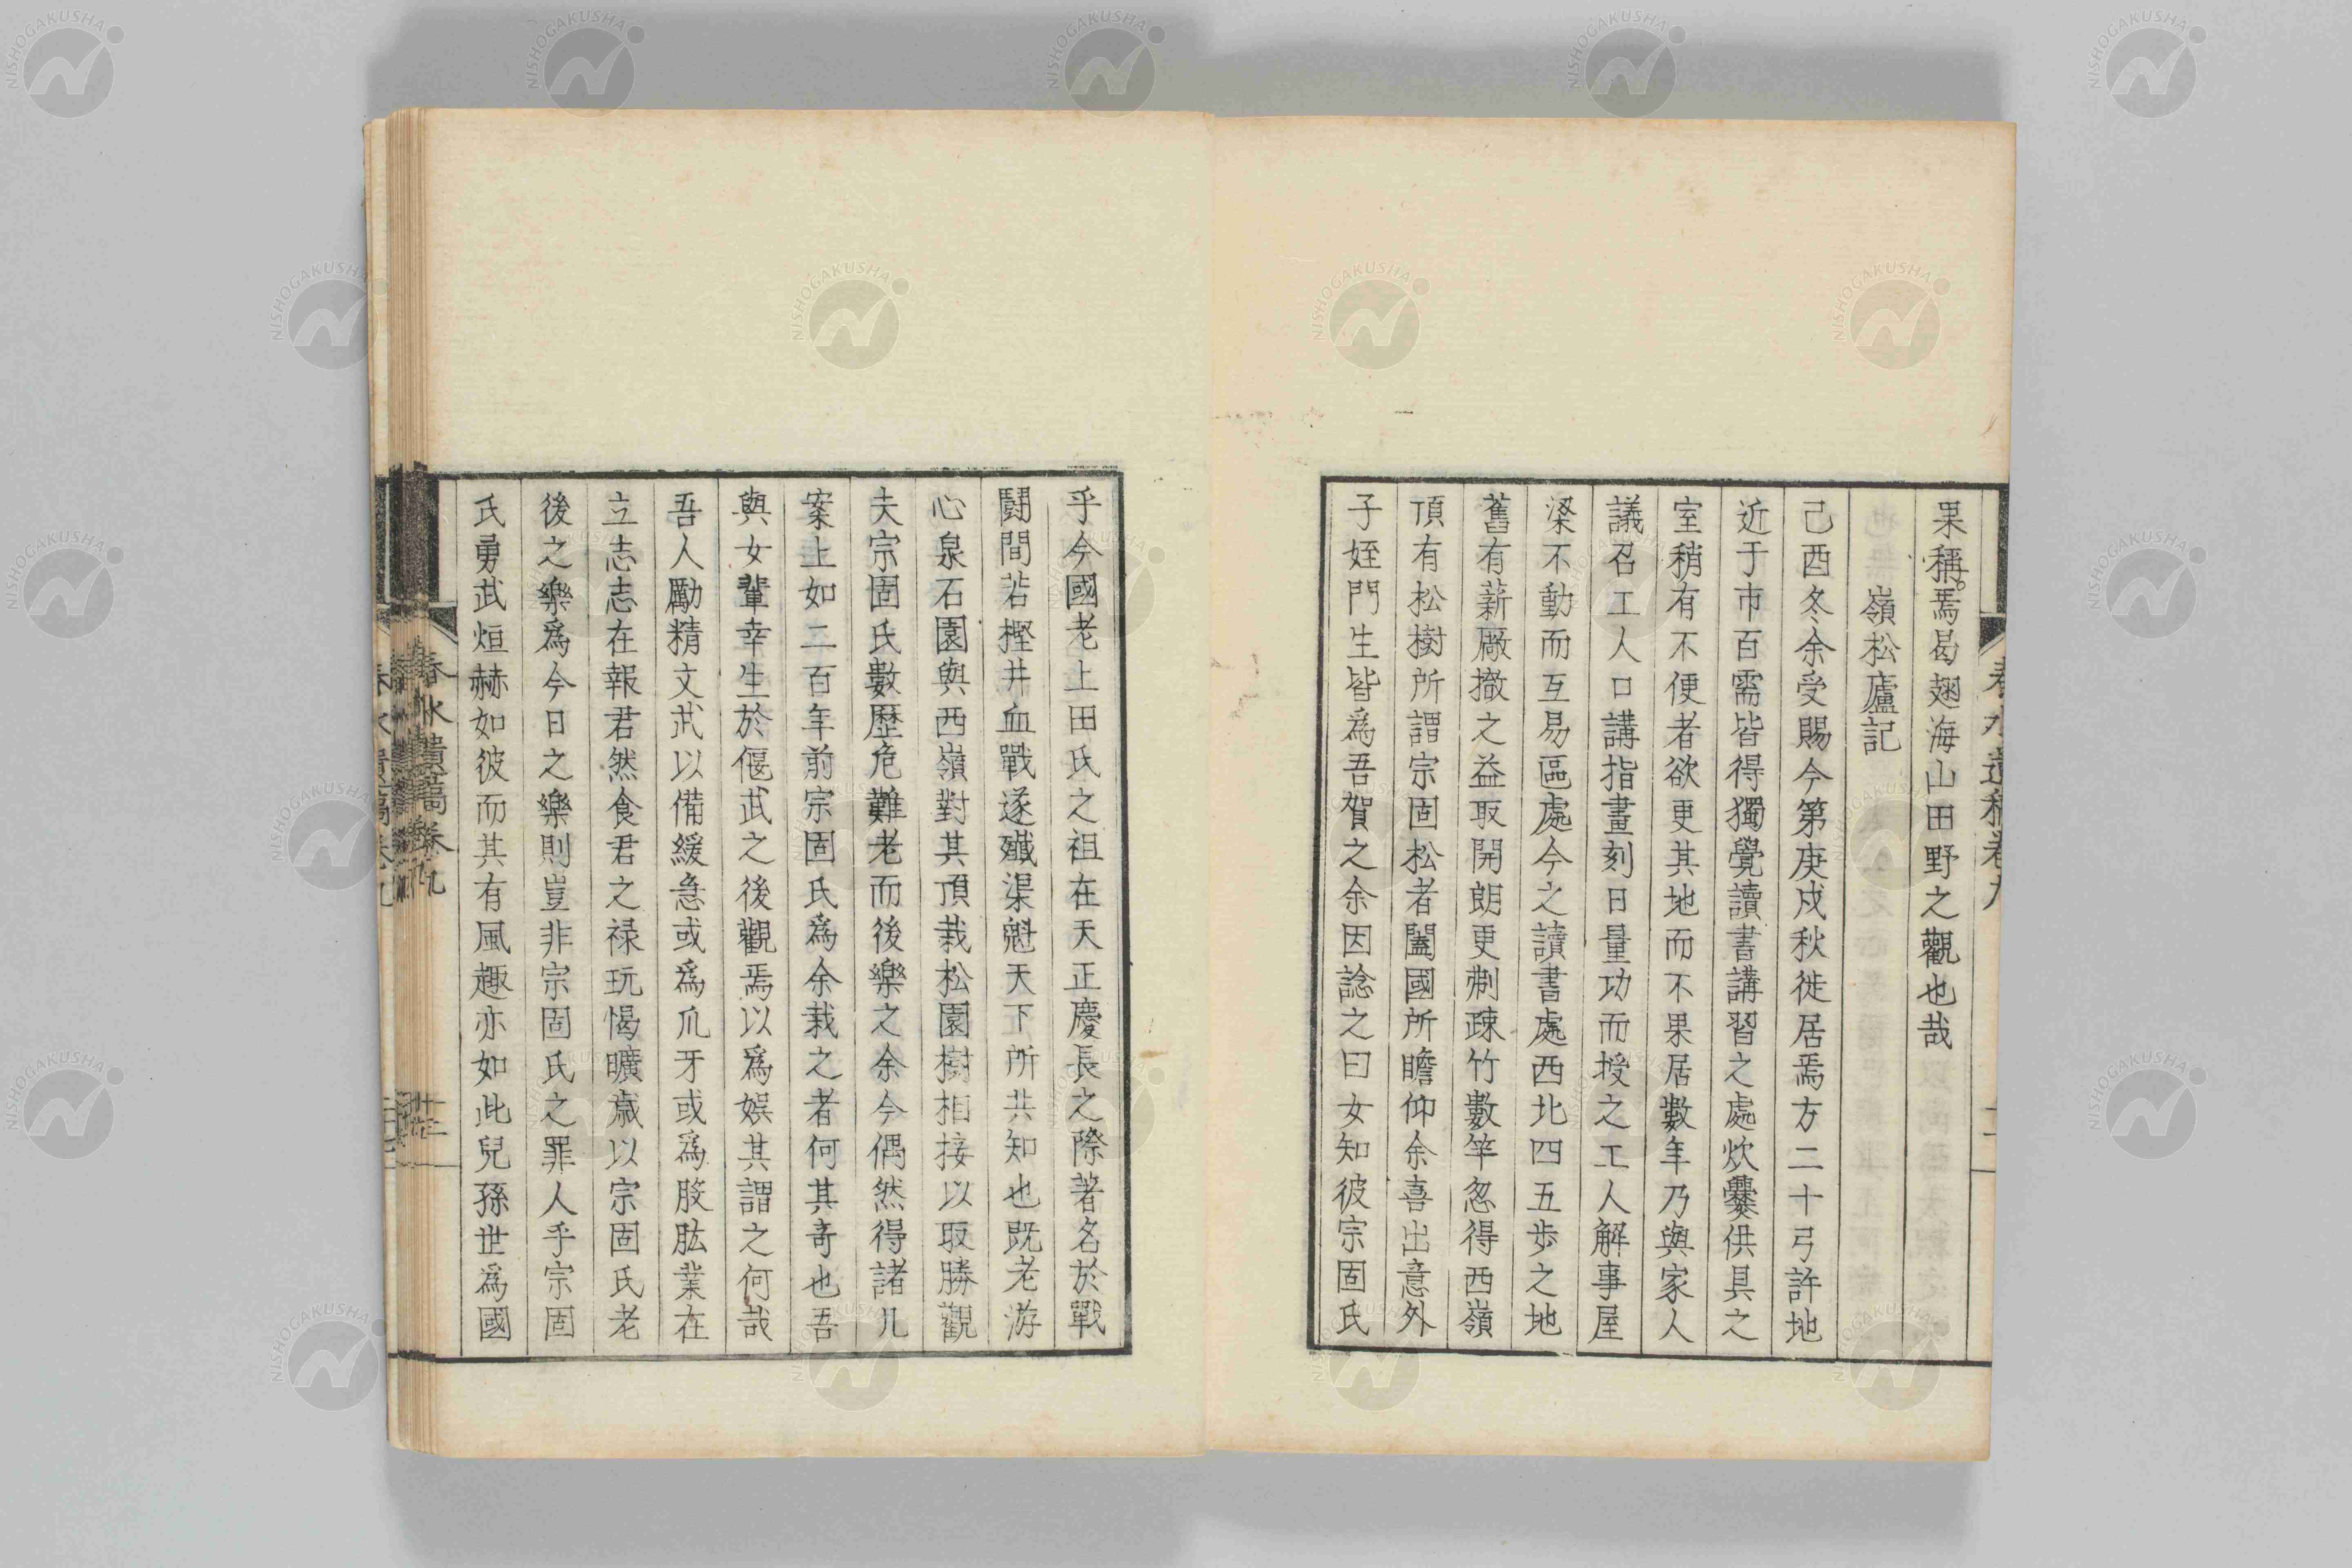 果稱焉曷翅海山田野之觀也哉
嶺松廬記
己酉冬余受賜今第庚戌秋徙居焉方二十弓許地
近于市百需皆得獨覺讀書講習之處炊爨供具之
室稍有不便者欲更其地而不果居數年乃與家人
議召工人口講指畫刻日量功而授之工人解事屋
梁不動而互易區處今之讀書處西北四五步之地
舊有薪廠撤之益取開朗更剃疎竹數竿忽得西嶺
頂有松樹所謂宗固松者闔國所瞻仰余喜出意外
子姪門生皆爲吾賀之余因諗之曰女知彼宗固氏
乎今國老上田氏之祖在天正慶長之際著名於戰
鬪間若樫井血戰遂殲渠魁天下所共知也既老游
心泉石園與西嶺對其頂栽松園樹相接以取勝觀
夫宗固氏數歷危難老而後樂之余今偶然得諸几
案上如二百年前宗固氏爲余栽之者何其奇也吾
與女輩幸生於偃武之後觀焉以爲娯其謂之何哉
吾人勵精文武以備緩急或爲爪牙或爲股肱業在
立志志在報君然食君之禄玩愒曠歳以宗固氏老
後之樂爲今日之樂則豈非宗固氏之罪人乎宗固
氏勇武烜赫如彼而其有風趣亦如此兒孫世爲國
春水遺稿卷九
NISHOGAKUSHA